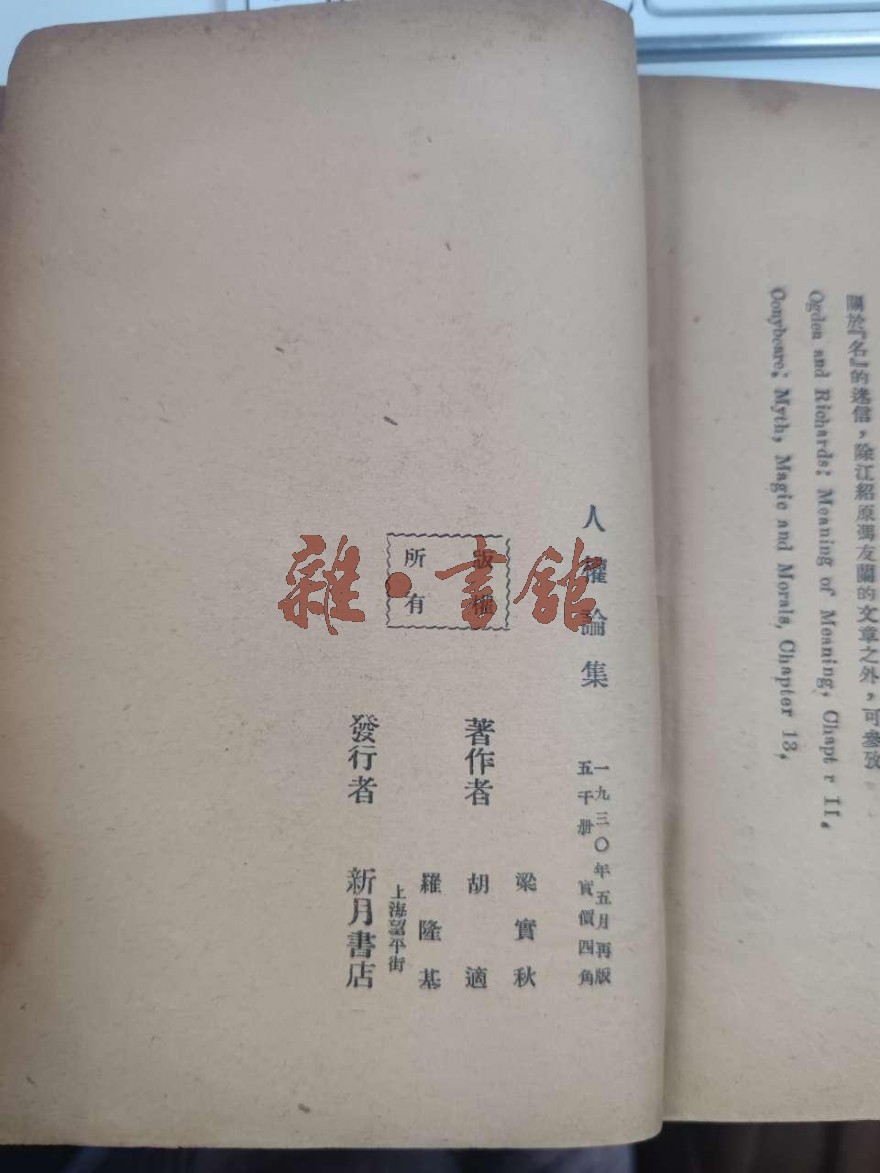 關於『名』的迷信，除江紹原馮友蘭的文章之外，可參攷。
Ogden and Richards: Meaning of Meaning, Chapt r II,
Conybeare: Myth, Magic and Morals, Chapter 13,
人權論集
一九三〇年五月再版
五千册 實價四角
版權
所有
著作者
梁實秋
胡適
羅隆基
發行者
上海望平街
新月書店
雜·書館